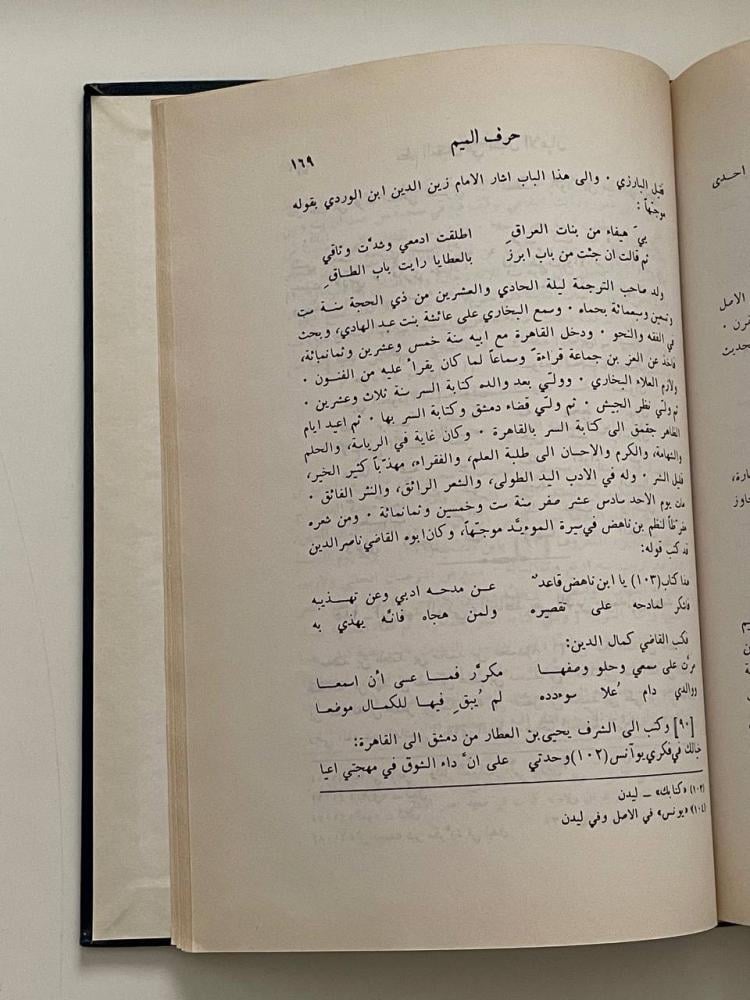 حرف الميم
١٦٩
فقيل البارزي . والى هذا الباب اشار الامام زين الدين ابن الوردي بقوله
موجّهاً :
بي هيفاء من بنات العراقِ اطلقت ادمعي وشدَّت وثاقي
ثم قالت ان جئت من باب ابرز بالعطايا رايت باب الطاقِ
ولد صاحب الترجمة ليلة الحادي والعشرين من ذي الحجة سنة ست
وتسعين وسبعمائة بحماه . وسمع البخاري على عائشة بنت عبد الهادي، وبحث
في الفقه والنحو . ودخل القاهرة مع ابيه سنة خمس وعشرين وثمانمائة،
فاخذ عن العز بن جماعة قراءةً وسماعاً لما كان يقرأ عليه من الفنون .
ولازم العلاء البخاري . وولّي بعد والده كتابة السر سنة ثلاث وعشرين .
ثم ولّي نظر الجيش . ثم ولّي قضاء دمشق وكتابة السر بها . ثم اعيد ايام
الظاهر جقمق الى كتابة السر بالقاهرة . وكان غاية في الرياسة، والحلم
والشهامة، والكرم والاحسان الى طلبة العلم، والفقراء، مهذّباً كثير الخير،
قليل الشر . وله في الادب اليد الطولى، والشعر الرائق، والنثر الفائق .
مات يوم الاحد سادس عشر صفر سنة ست وخمسين وثمانمائة . ومن شعره
مقرّظاً لنظم بن ناهض في سيرة الموءيَّد موجّهاً، وكان ابوه القاضي ناصر الدين
قد كتب قوله:
هذا كتاب (١٠٣) يا ابن ناهض قاعدٌ عن مدحه ادبي وعن تهذيبه
فاشكر لمادحه على تقصيره ولمن هجاه فانّه يهذي به
فكتب القاضي كمال الدين:
مرَّت على سمعي وحلو وصفها مكرَّر فما عسى أن اسمعا
ووالدي دام ُعلا سوءدده لم يُبقِ فيها للكمال موضعا
[٩٠] وكتب الى الشرف يحيى بن العطار من دمشق الى القاهرة:
خيالك في فكري يوآنس (١٠٢) وحدتي على انَّ داء الشوق في مهجتي اعيا
(١٠٣) «كتابك» – ليدن
(١٠٤) «يونس» في الاصل وفي ليدن
احدى
الاصل
قرن .
حديث